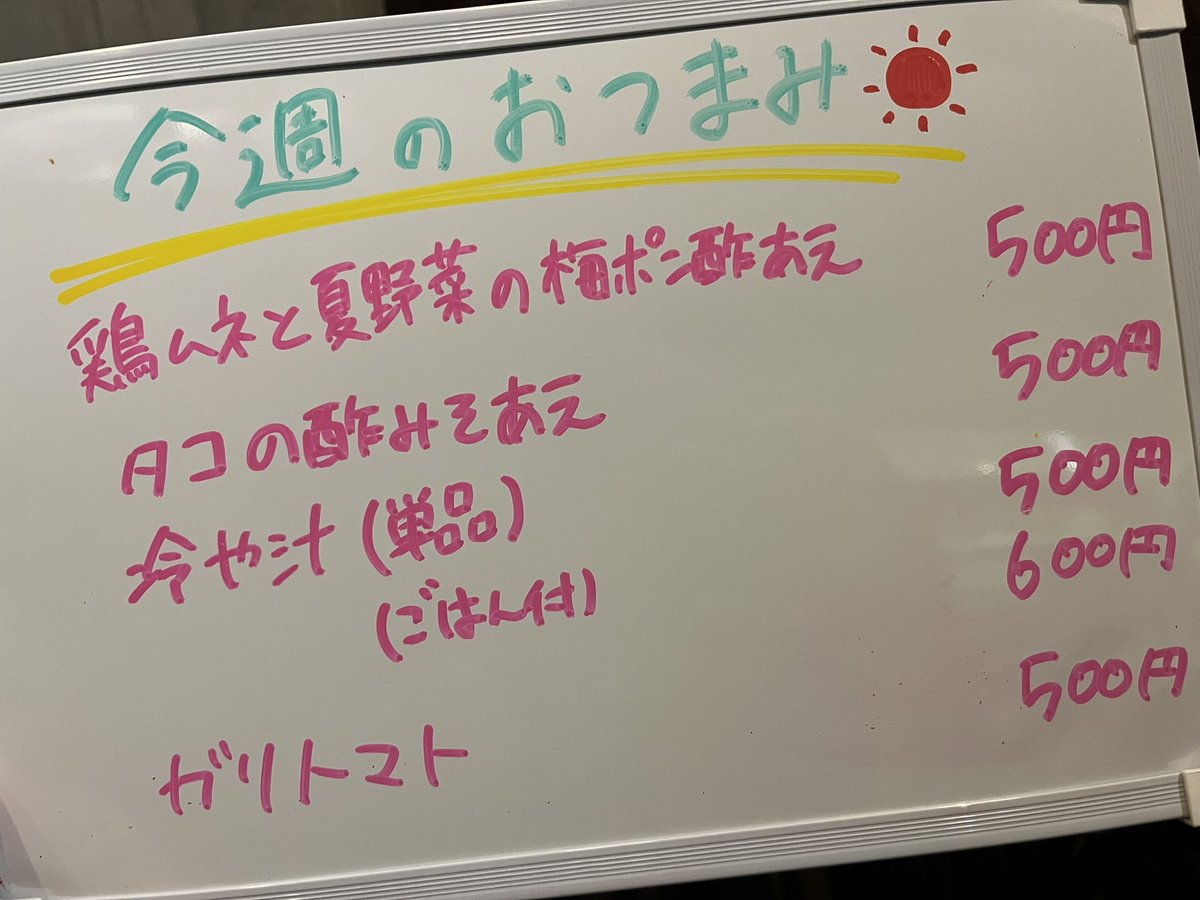 今週のおつまみ
鶏ムネと夏野菜の梅ポン酢あえ 500円
タコの酢みそあえ 500円
冷や汁(単品) 500円
(ごはん付) 600円
ガリトマト 500円